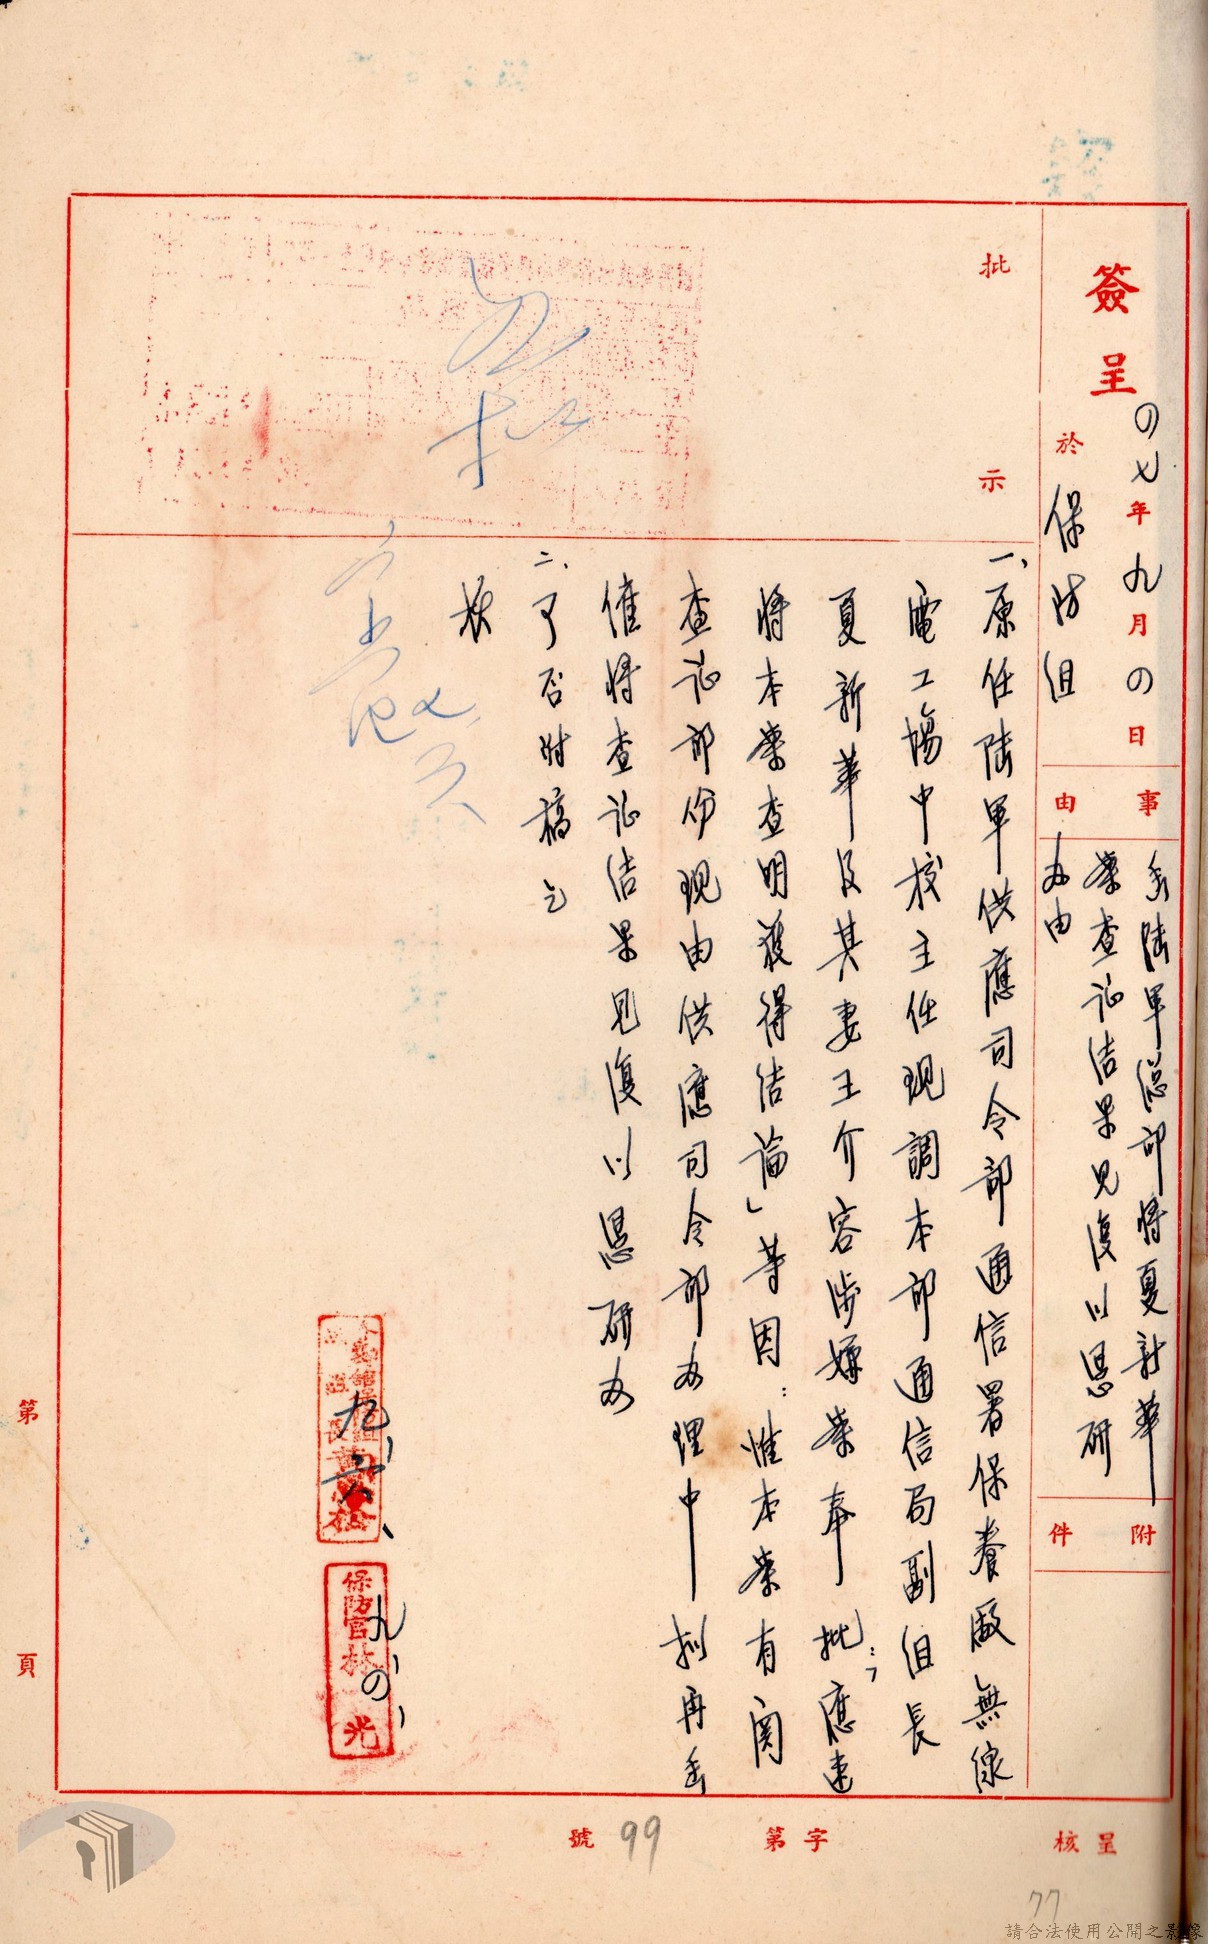 簽呈
四七年九月四日
於保防組
事由
函陸軍總部將夏新華
案查証結果見復以憑研
办由
附件
批示
一、原任陸軍供應司令部通信署保養廠無線
電工場中校主任現調本部通信局副組長
夏新華及其妻王介容涉嫌案奉批：「應速
將本案查明獲得結論」等因：惟本案有関
查証部份現由供應司令部办理中擬再函
催將查証結果見復以憑研办
二、可否附稿乞
核
九、六、
保防官林光
九、四、
呈核
字第99號
第 頁
77
請合法使用公開之影像